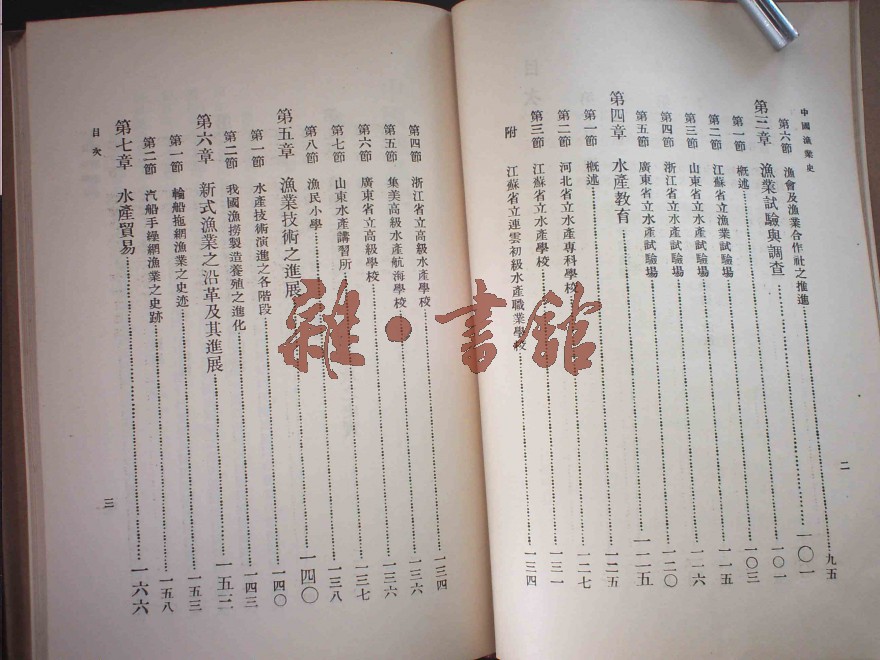 中國漁業史
二
第六節 漁會及漁業合作社之推進……九五
第三章 漁業試驗與調查……一〇一
第一節 概述……一〇一
第二節 江蘇省立漁業試驗場……一〇三
第三節 山東省立水產試驗場……一一五
第四節 浙江省立水產試驗場……一一六
第五節 廣東省立水產試驗場……一二〇
第四章 水產教育……一二五
第一節 概述……一二五
第二節 河北省立水產專科學校……一二七
第三節 江蘇省立水產學校……一三一
附 江蘇省立連雲初級水產職業學校……一三四
第四節 浙江省立高級水產學校……一三四
第五節 集美高級水產航海學校……一三六
第六節 廣東省立高級學校……一三六
第七節 山東水產講習所……一三七
第八節 漁民小學……一三八
第五章 漁業技術之進展……一四〇
第一節 水產技術演進之各階段……一四〇
第二節 我國漁撈製造養殖之進化……一四三
第六章 新式漁業之沿革及其進展……一五三
第一節 輪船拖網漁業之史迹……一五三
第二節 汽船手繰網漁業之史跡……一五八
第七章 水產貿易……一六六
目次
三
雜·書館